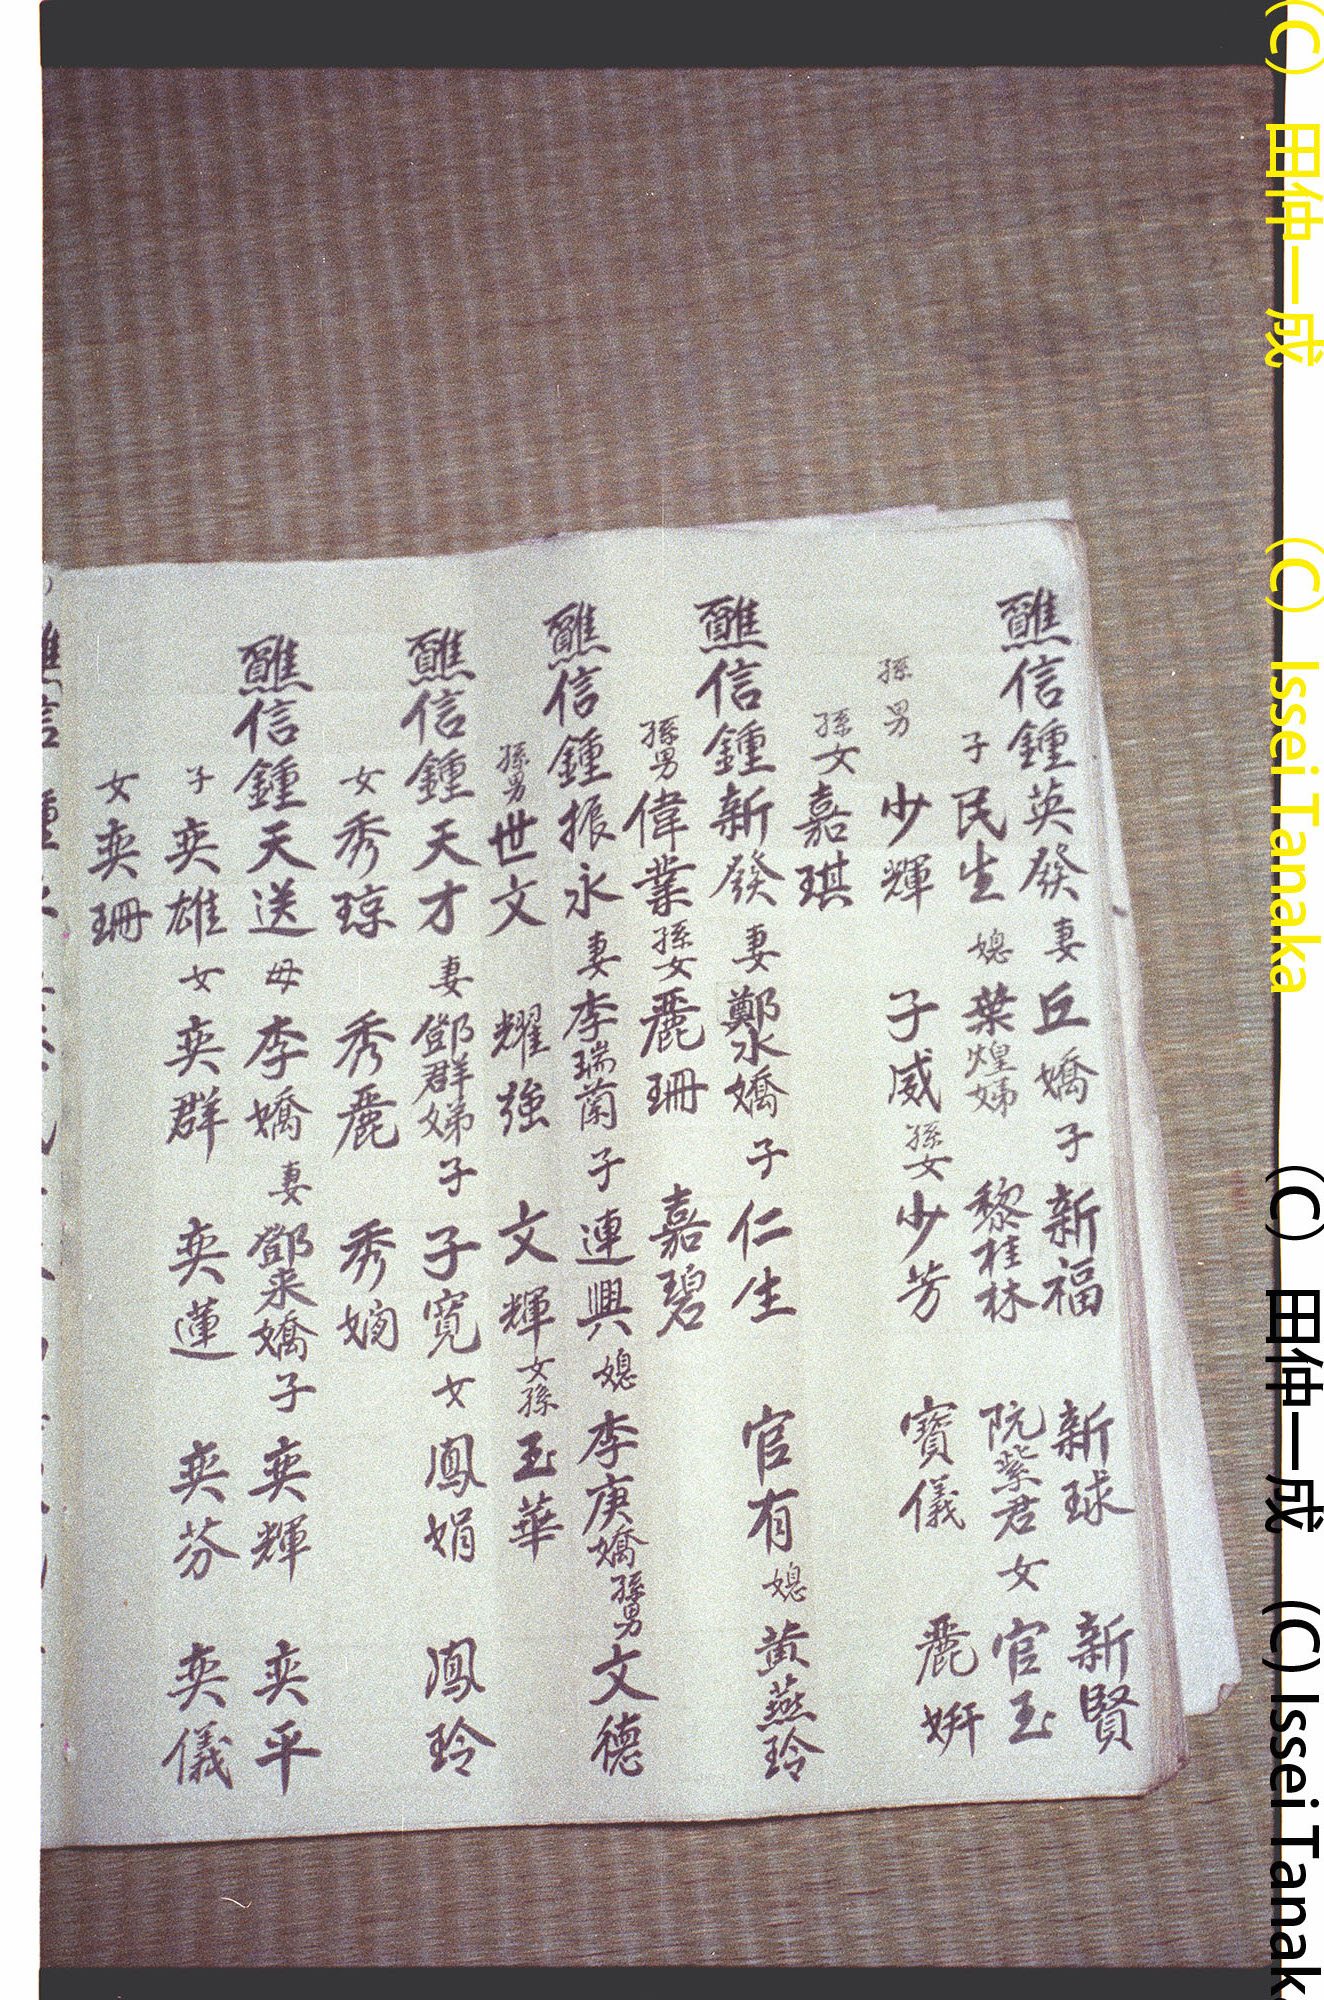 醮信鍾英發妻丘嬌子新福 新球 新賢
子民生媳葉煌娣 黎桂林 阮紫君女官玉
孫男少輝 子威孫女少芳 寶儀 麗妍
孫女嘉琪
醮信鍾新發妻鄭水嬌子仁生 官有媳黃燕玲
孫男偉業孫女麗珊 嘉碧
醮信鍾振永妻李瑞蘭子連興媳李庚嬌孫男文德
孫男世文 耀強 文輝女孫玉華
醮信鍾天才妻鄧群娣子子寬女鳳娟 鳳玲
女秀琼 秀麗 秀嫻
醮信鍾天送母李嬌妻鄧來嬌子奕輝 奕平
子奕雄女奕群 奕蓮 奕芬 奕儀
女奕珊
(C) 田仲一成 (C) Issei Tanaka (C) 田仲一成 (C) Issei Tanak